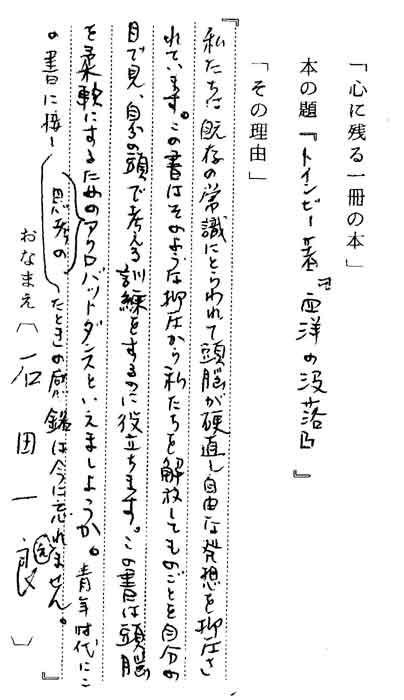 「心に残る一冊の本」
本の題『トインビー著『西洋の没落』』
「その理由」
『私たちは既存の常識にとらわれて頭脳が硬直し自由な発想を抑圧さ
れています。この書はそのような抑圧から私たちを解放してものごとを自分の
目で見、自分の頭で考える訓練をするのに役立ちます。この書は頭脳
を柔軟にするためのアクロバットダンスといえましょうか。青年時代にこ
思考の
の書に接したときの感銘は今に忘れません。』
おなまえ〔石田一良〕